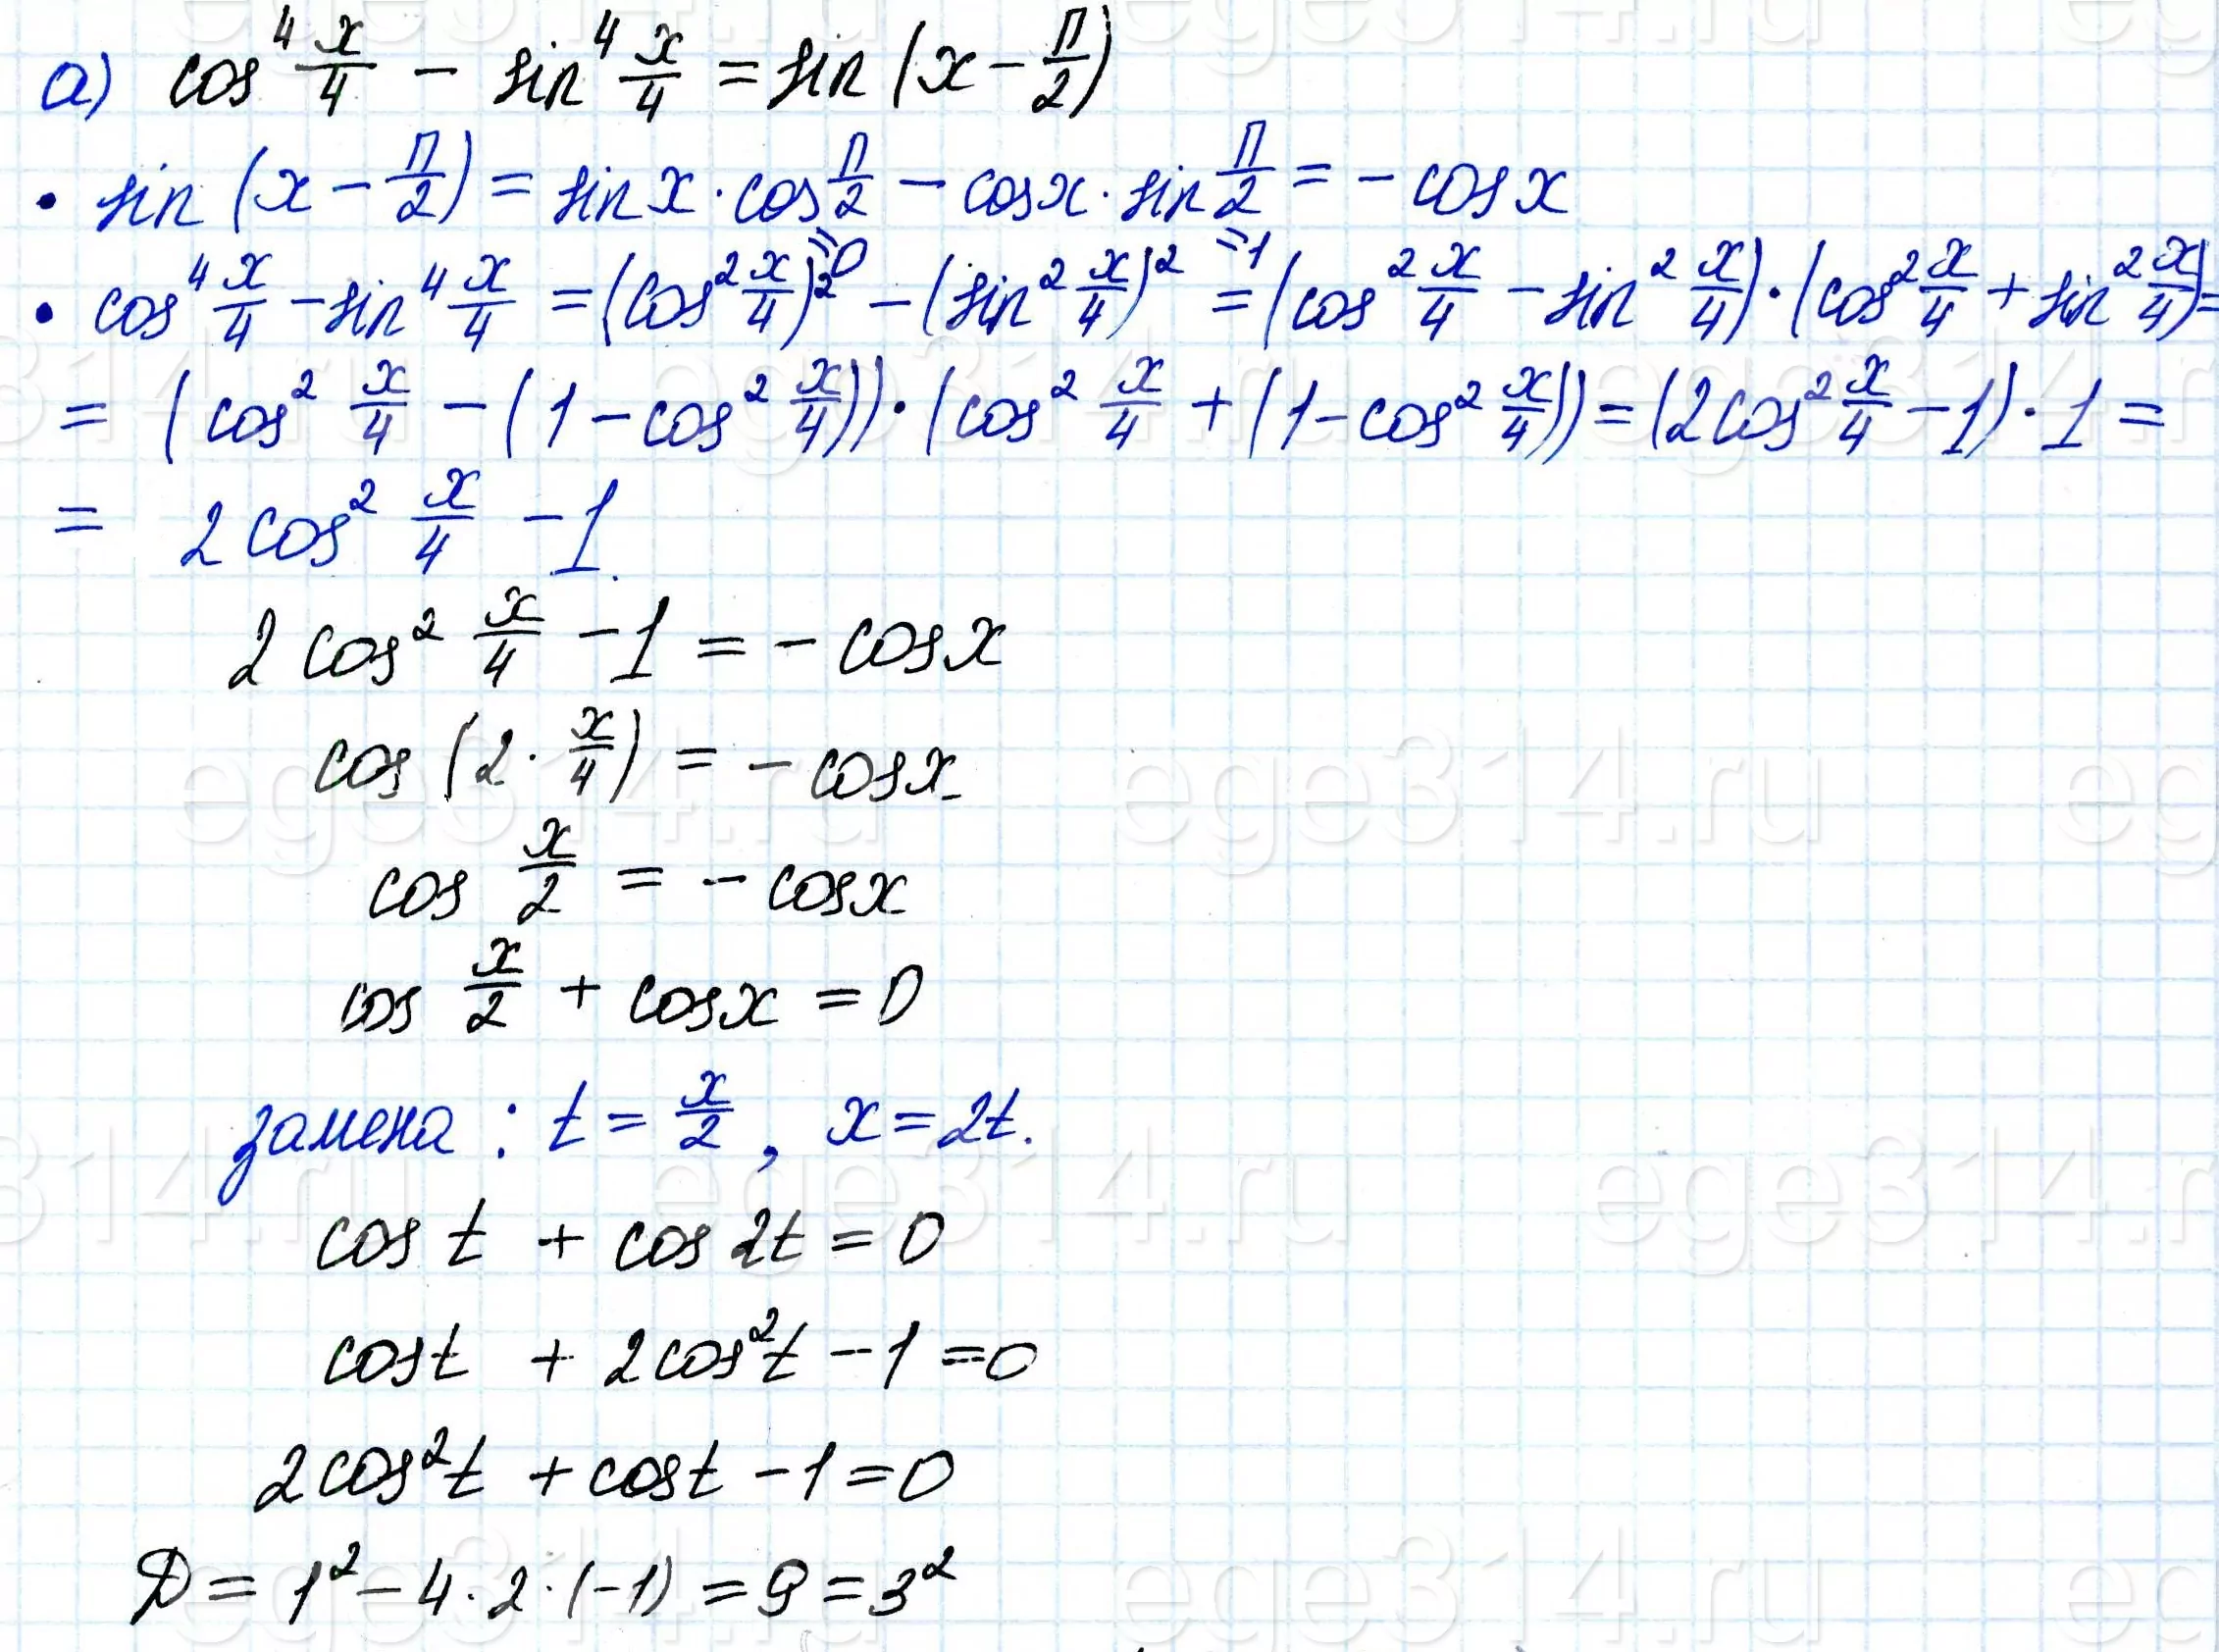 а) cos⁴ x/4 − sin⁴ x/4 = sin(x − π/2)
• sin(x − π/2) = sin x · cos π/2 − cos x · sin π/2 = − cos x
=0 =1
• cos⁴ x/4 − sin⁴ x/4 = (cos² x/4)² − (sin² x/4)² = (cos² x/4 − sin² x/4) · (cos² x/4 + sin² x/4) =
= (cos² x/4 − (1 − cos² x/4)) · (cos² x/4 + (1 − cos² x/4)) = (2cos² x/4 − 1) · 1 =
= 2cos² x/4 − 1.
2cos² x/4 − 1 = − cos x
cos(2 · x/4) = − cos x
cos x/2 = − cos x
cos x/2 + cos x = 0
замена: t = x/2, x = 2t.
cos t + cos 2t = 0
cos t + 2cos²t − 1 = 0
2cos²t + cos t − 1 = 0
D = 1² − 4 · 2 · (−1) = 9 = 3²
ege314.ru